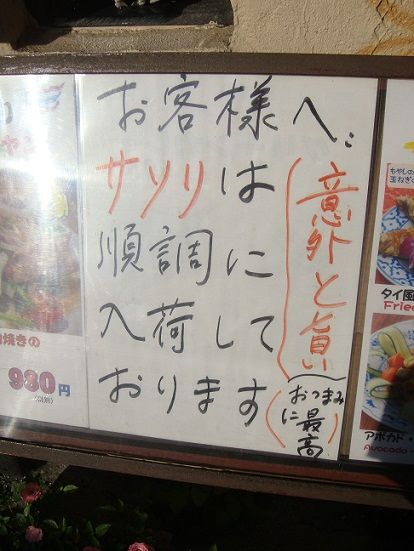 お客様へ:
サソリは
順調に
入荷して
おります
(意外と旨い)
(おつまみ
に最高)
焼きの
980円
もやしの
玉ねぎの
タイ風
Fried
アボカド・
Avocado